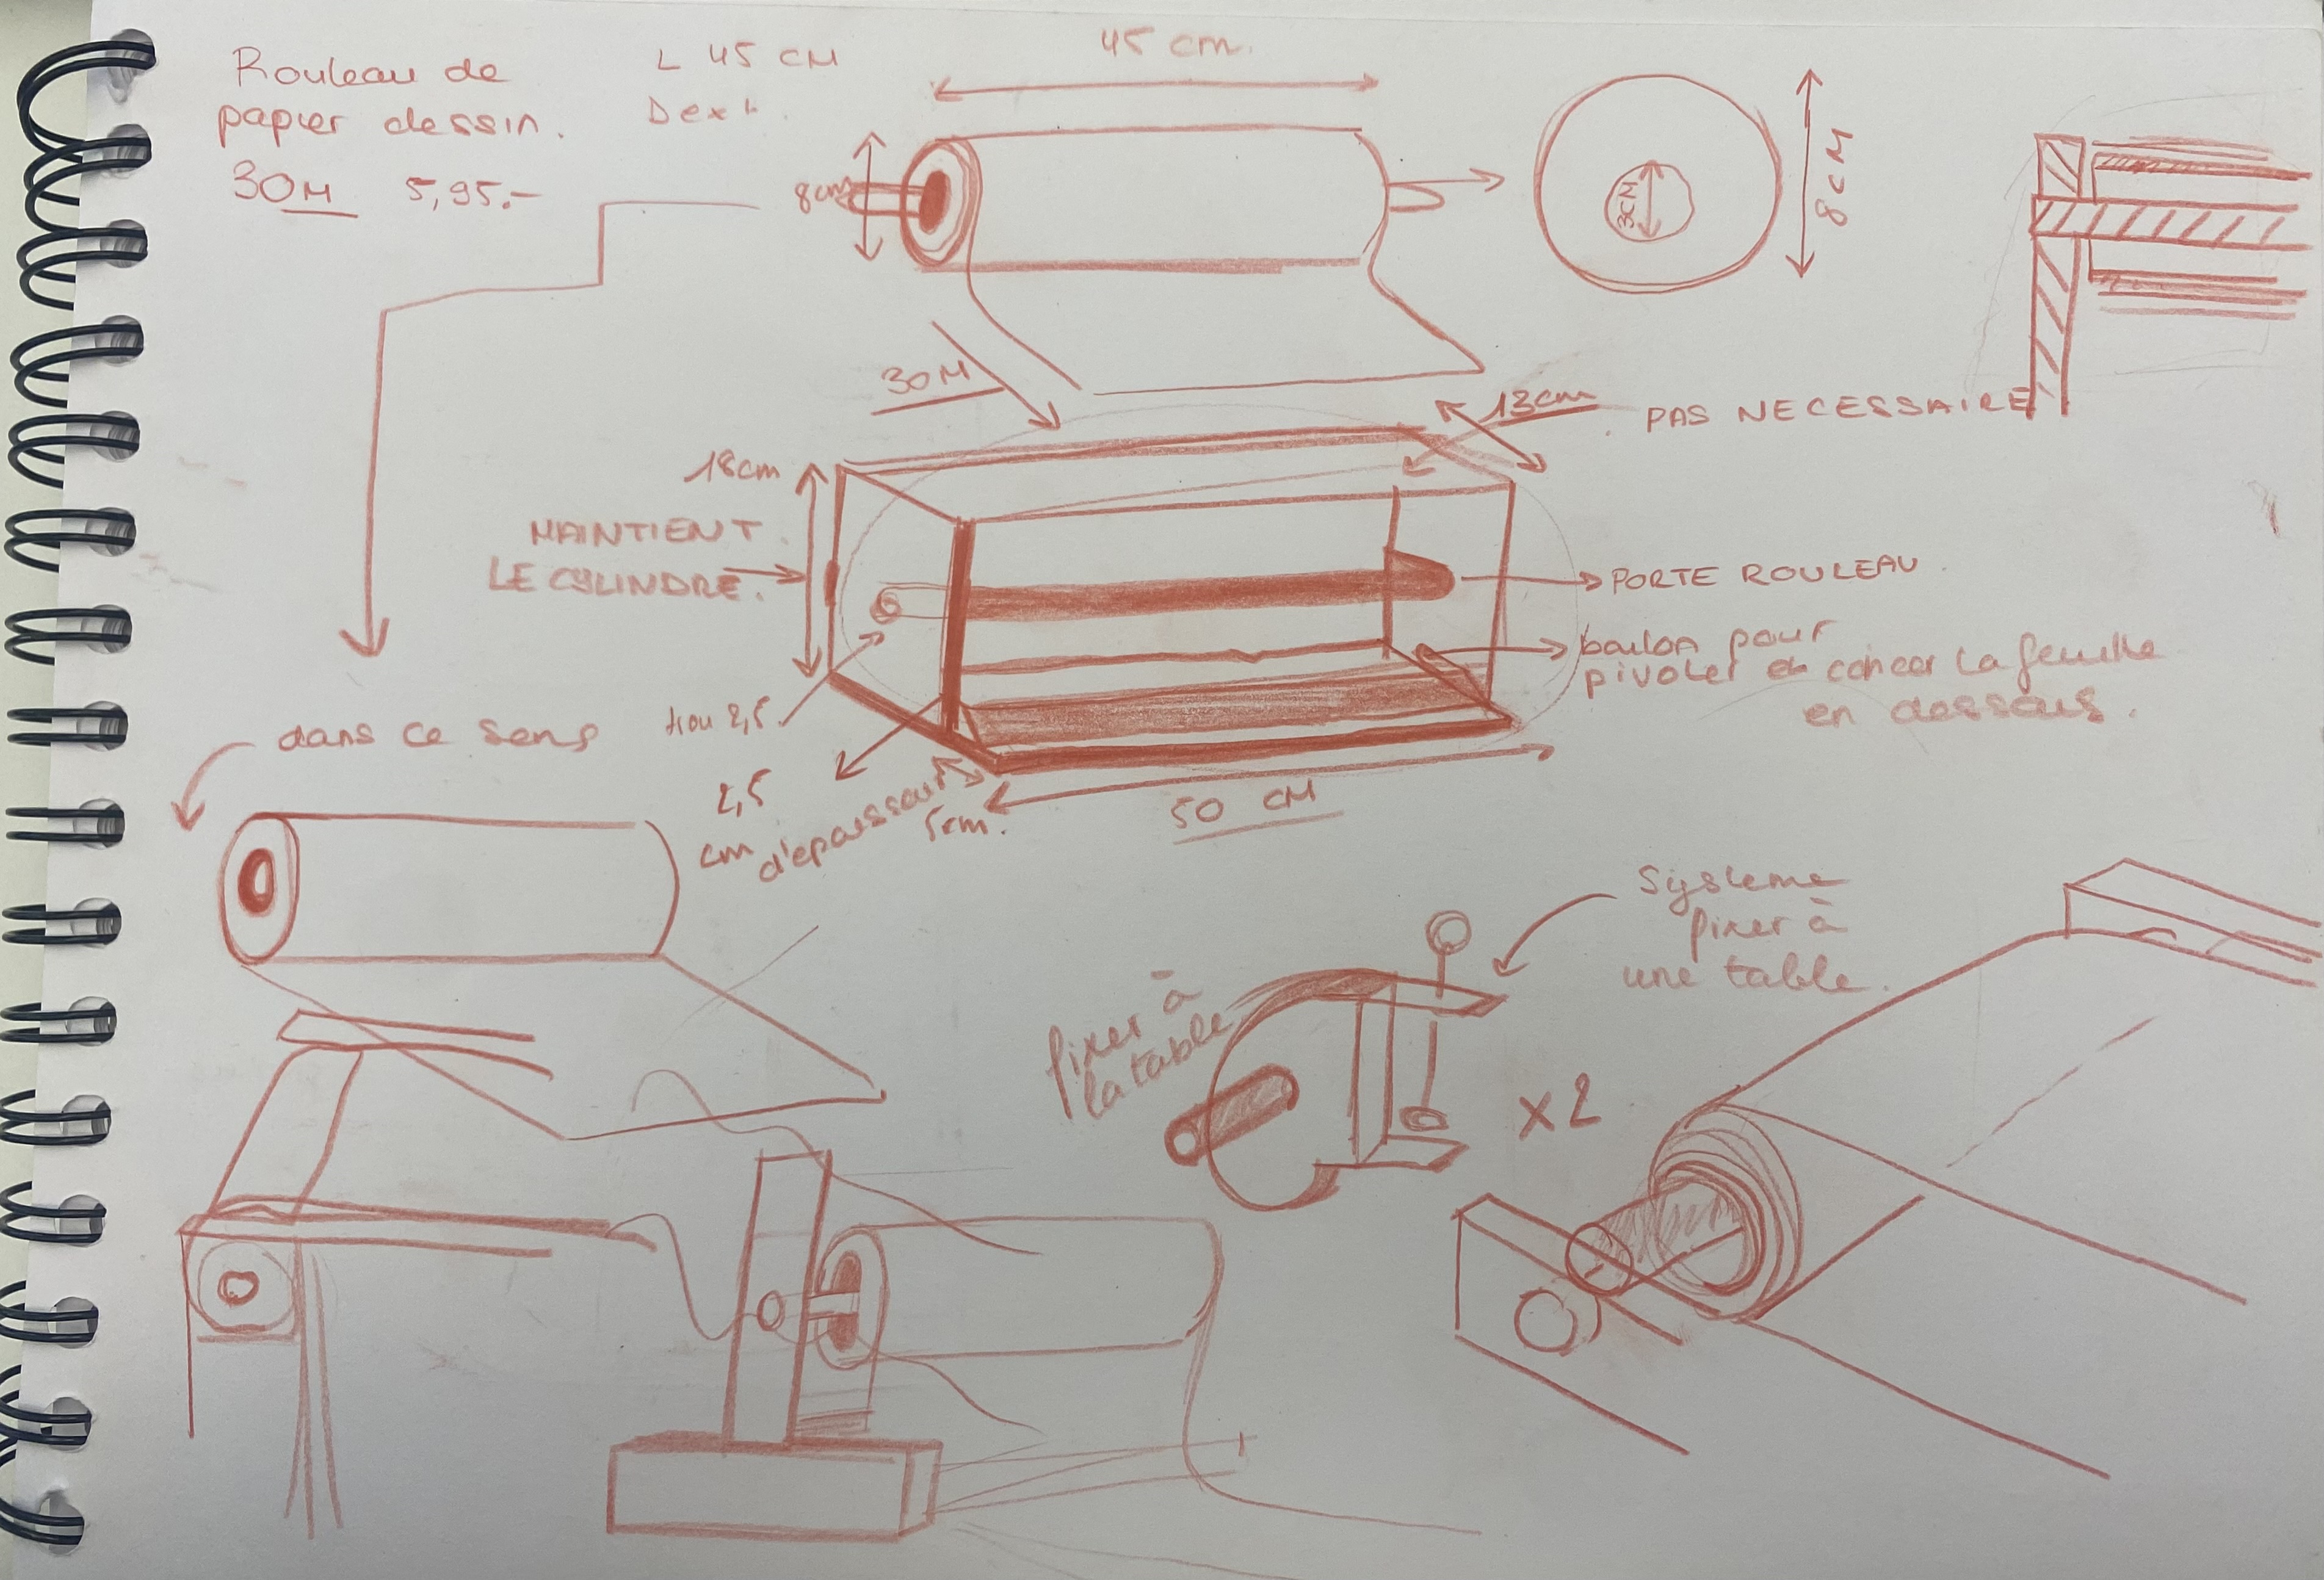 Rouleau de
papier dessin.
30M 5,95.-
L 45 CM
D ext.
45 cm.
8cm
3CM
8CM
30M
13cm
PAS NECESSAIRE
18cm
MAINTIENT
LE CYLINDRE.
PORTE ROULEAU
pour
pivoter et coincer la feuille
en dessous.
trou 2,5
2,5
cm d'epaisseur
5cm.
50 CM
dans ce sens
Systeme
fixer à
une table.
fixer à
la table
x2